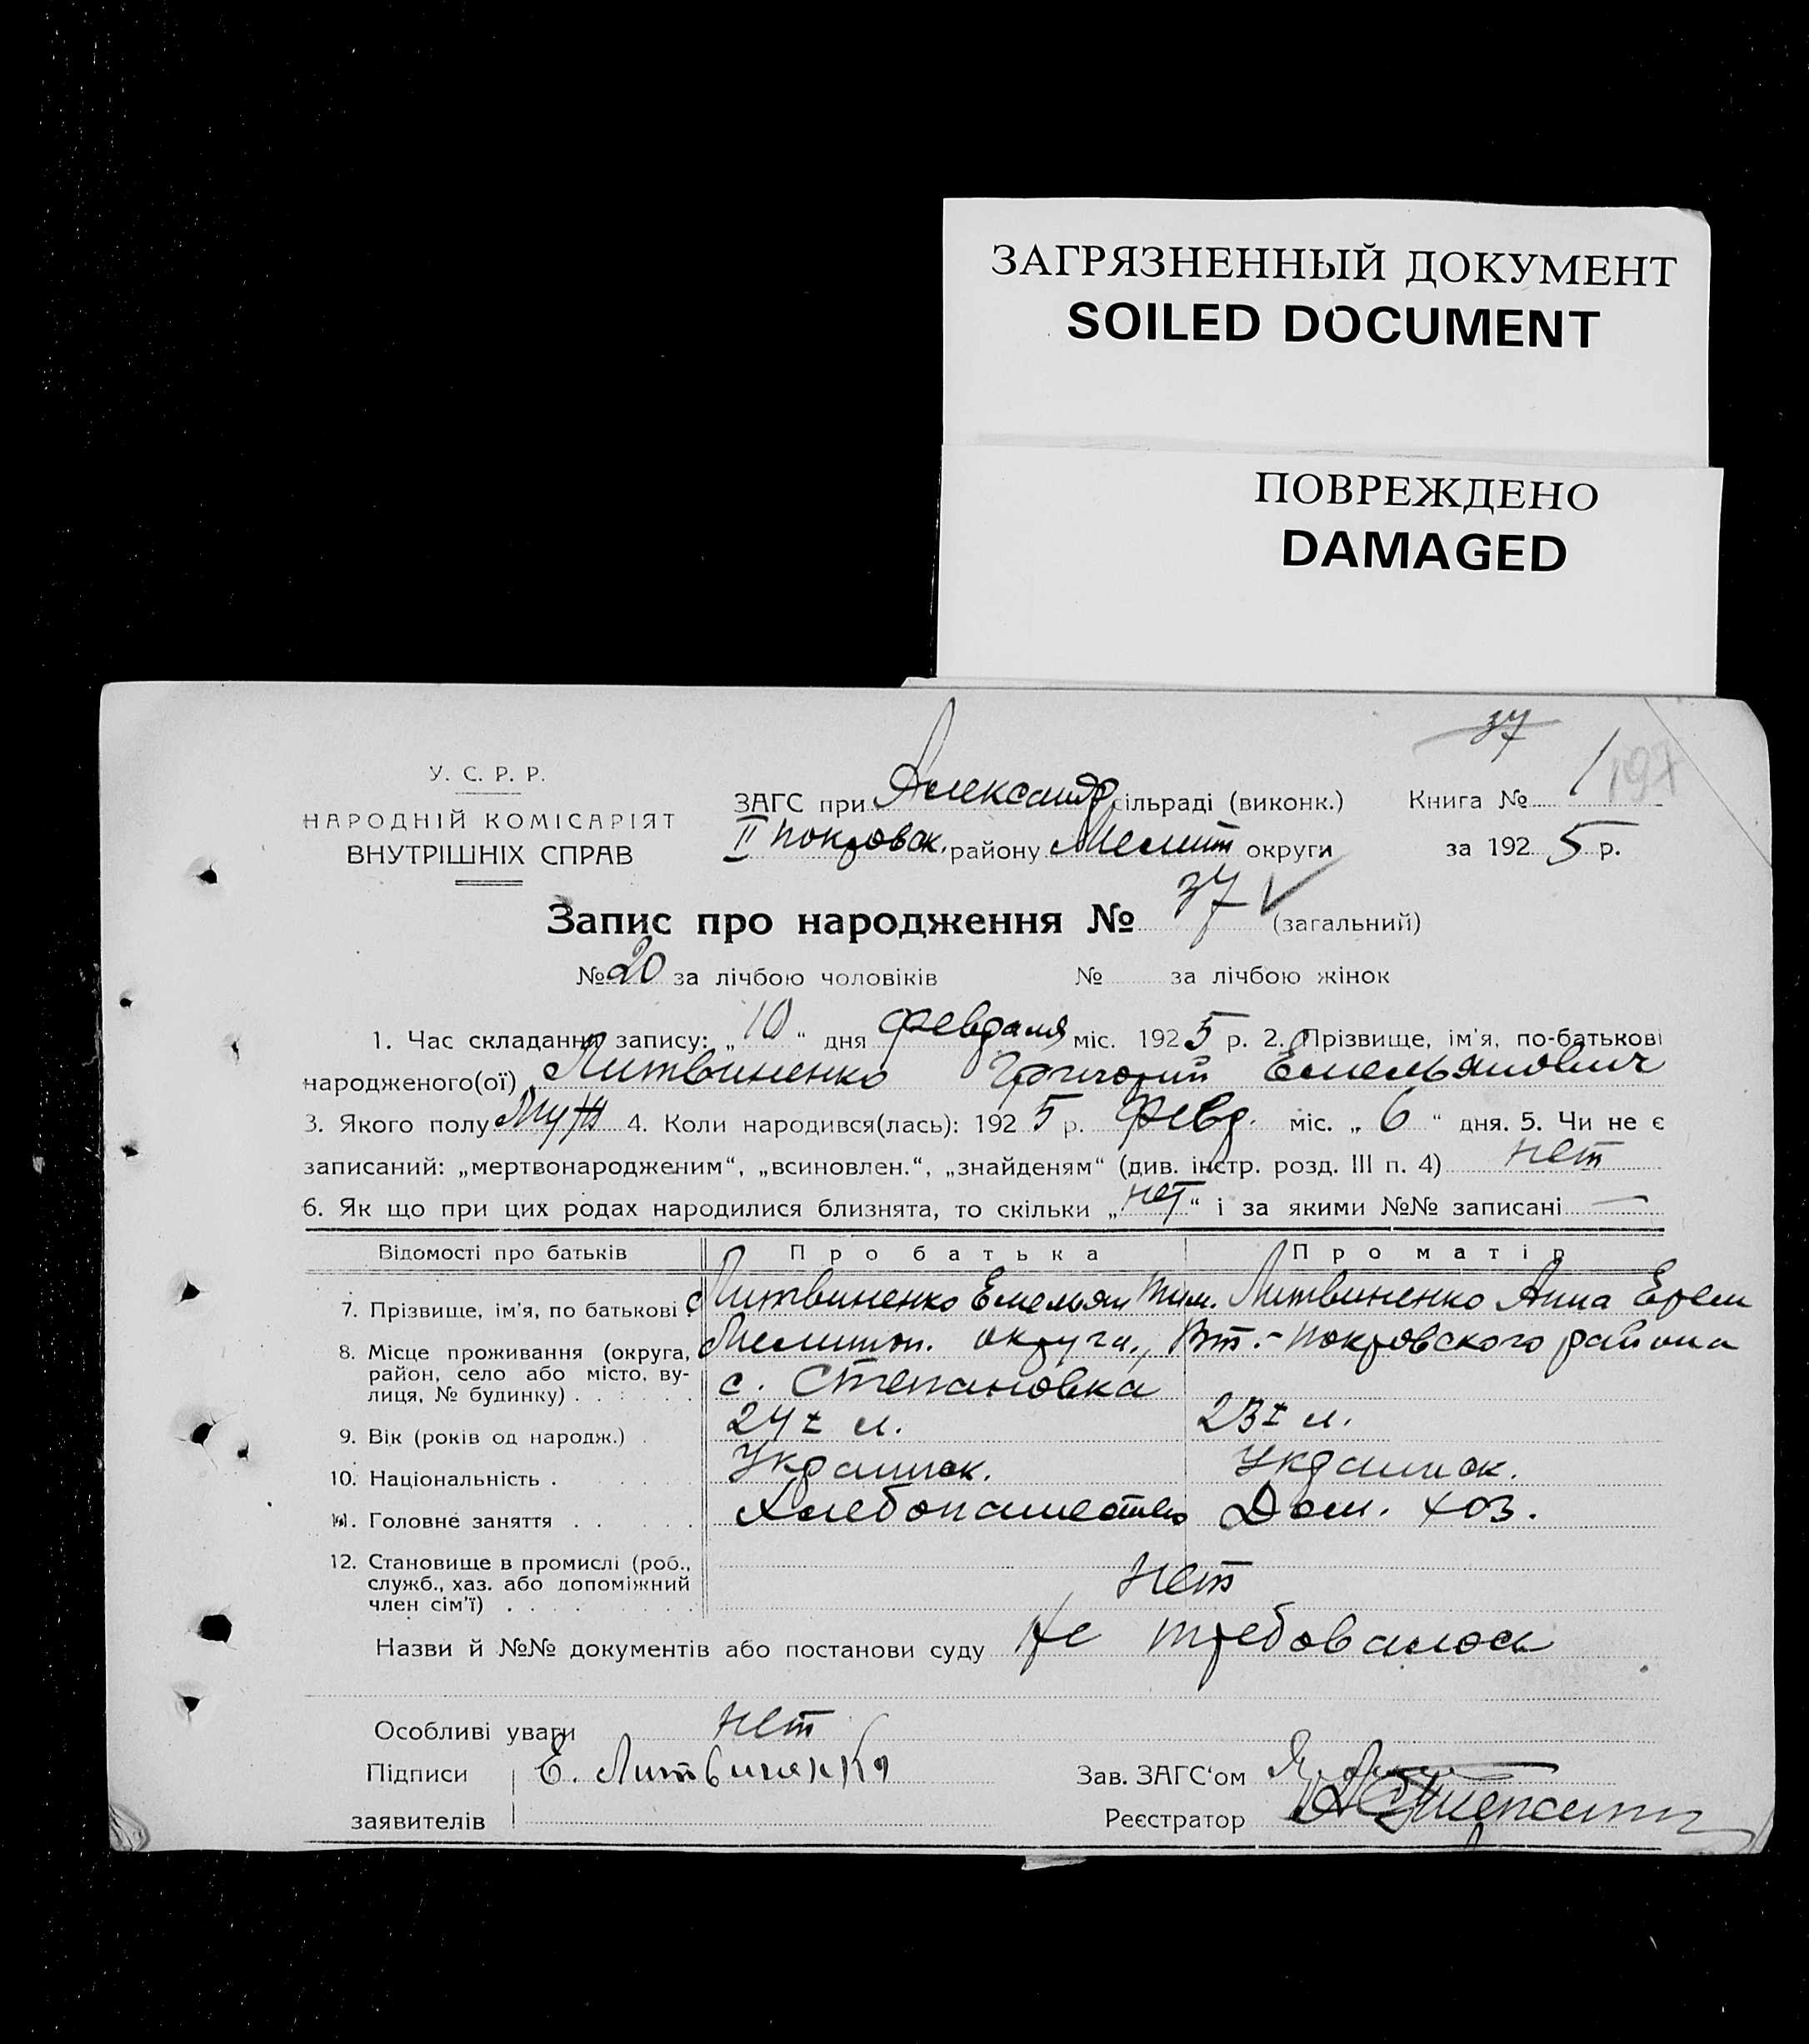 ЗАГРЯЗНЕННЫЙ ДОКУМЕНТ
SOILED DOCUMENT
ПОВРЕЖДЕНО
DAMAGED
37
У. С. Р. Р.
НАРОДНІЙ КОМІСАРІЯТ
ВНУТРІШНІХ СПРАВ
ЗАГС при Александр сільраді (виконк.) Книга № 1 197
II Покровск. району Мелит округи за 1925 р.
Запис про народження № 37 (загальний)
№ 20 за лічбою чоловіків № за лічбою жінок
1. Час складання запису: „10“ дня февраля міс. 1925 р. 2. Прізвище, ім'я, по-батькові
народженого(ої) Литвиненко Григорий Емельянович
3. Якого полу Муж 4. Коли народився(лась): 1925 р. Февр. міс. „6“ дня. 5. Чи не є
записаний: „мертвонародженим“, „всиновлен.“, „знайденям“ (див. інстр. розд. III п. 4) нет
6. Як що при цих родах народилися близнята, то скільки „нет“ і за якими №№ записані —
Відомості про батьків Про батька Про матір
7. Прізвище, ім'я, по батькові Литвиненко Емельян Тим. Литвиненко Анна Ерем
8. Місце проживання (округа, Мелитоп. округа, Вт.-Покровского района
район, село або місто, ву-
лиця, № будинку) . . . . с. Степановка
9. Вік (років од народж.) . 24 л. 23 л.
10. Національність . Украинск. Украинск.
11. Головне заняття . . . . Хлебопашество Дом. хоз.
12. Становище в промислі (роб.,
служб., хаз. або допоміжний нет
член сім'ї) . . . . . .
Назви й №№ документів або постанови суду Не требовалось
Особливі уваги нет
Підписи Е. Литвиненко Зав. ЗАГС‘ом
заявителів Реєстратор